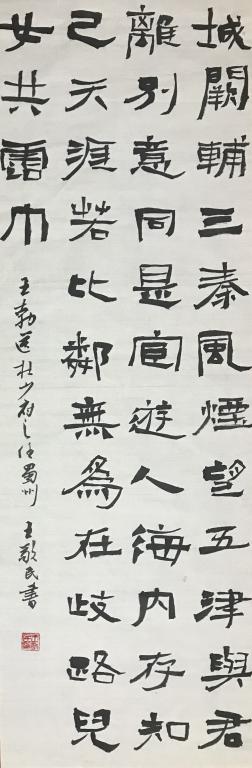 城闕輔三秦風煙望五津與君
離別意同是宦遊人海内存知
己天涯若比鄰無爲在歧路兒
女共霑巾
王勃送杜少府之任蜀州 王敬民書